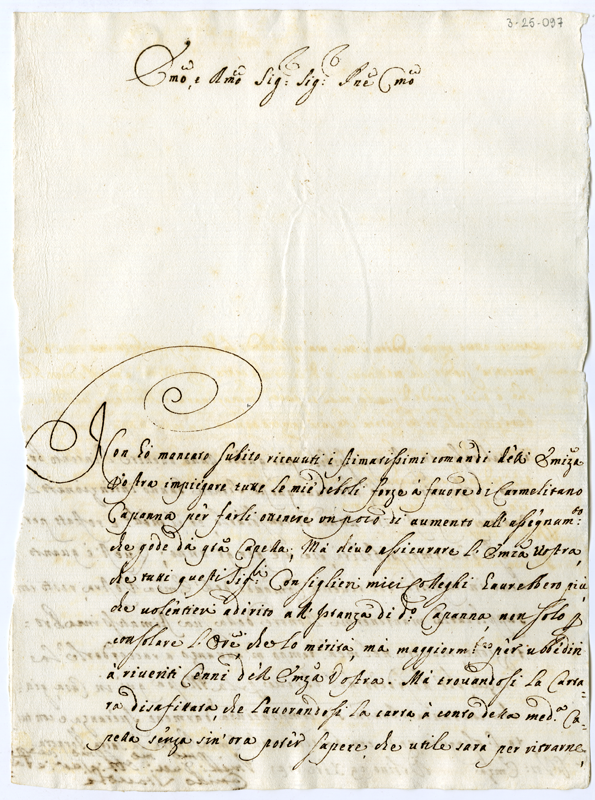 3-25-097
Emo, e Rmo Sig: Sig: Pne Cmo
Non hò mancato subito riceuuti i stimatissimi comandi dell' Emiza
Vostra impiegare tutte le mie deboli forze à fauore di Carmelitano
Caponna per farli ottenere vn poco di aumento all' assegnamto
che gode da qta Capella; Mà deuo assicurare l' Emza Vostra,
che tutti questi Sigri Consiglieri miei Colleghi haurebbero più
che uolentieri aderito all' jstanza di do Caponna non solo p
consolare l' Ore, che lo merita, mà maggiormte per ubbidire
a riueriti Cenni dell' Emza Vostra. Mà trouandosi la Carta-
ra disafittata, che lauorandosi la carta à conto della meda Ca-
pella senza sin' ora poter sapere, che utile sarà per ritrarne,